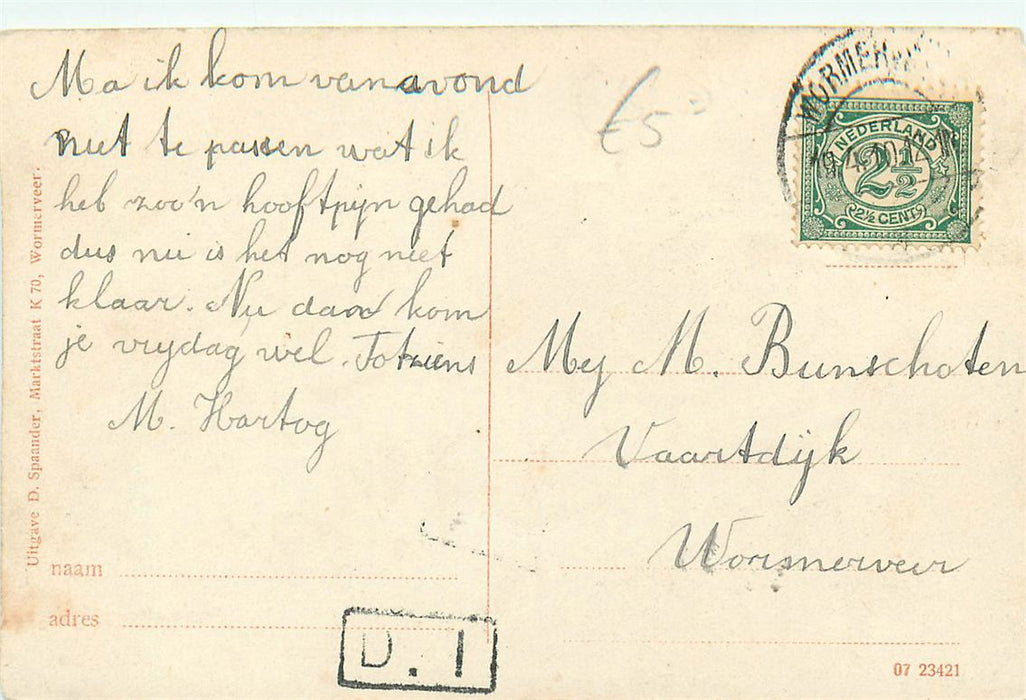 Ma ik kom vanavond
niet te passen wat ik
heb zoo'n hooftpijn gehad
dus nu is het nog niet
klaar. Nu dan kom
je vrijdag wel. Tot ziens
M. Hartog
Uitgave D. Spaander, Marktstraat K 70, Wormerveer.
naam
adres
D. 1
£5
WORMERVEER
19.4.10.12
NEDERLAND
2½
2½ CENT
Mej M. Bunschoten
Vaartdijk
Wormerveer
07 23421